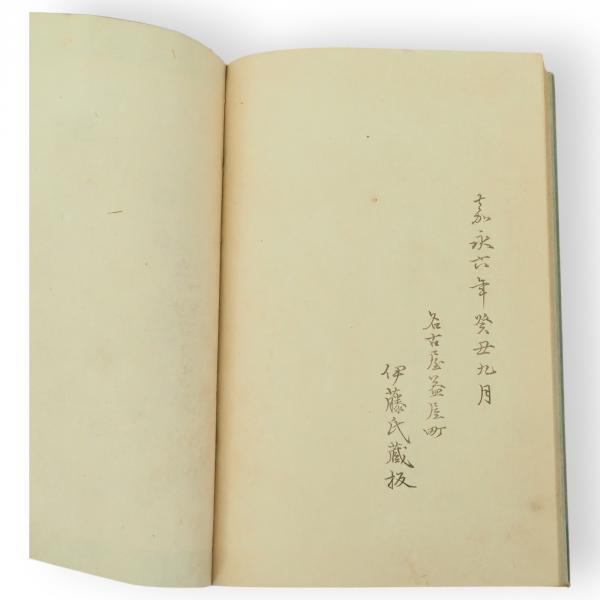 嘉永六年癸丑九月
名古屋益屋町
伊藤氏蔵板